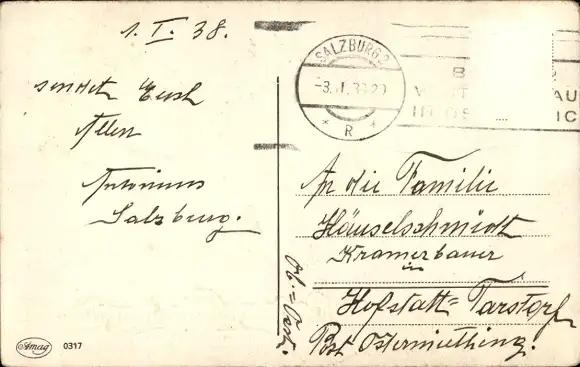 1. I. 38.
sendet Euch
Allen
Antonius
Salzburg.
SALZBURG 2
R
An die Familie
Häuselschmidt
Kramerbauer
in
Hofstatt = Tarstorf
Post Ostermiething.
Ob.=Öst.
Amag 0317